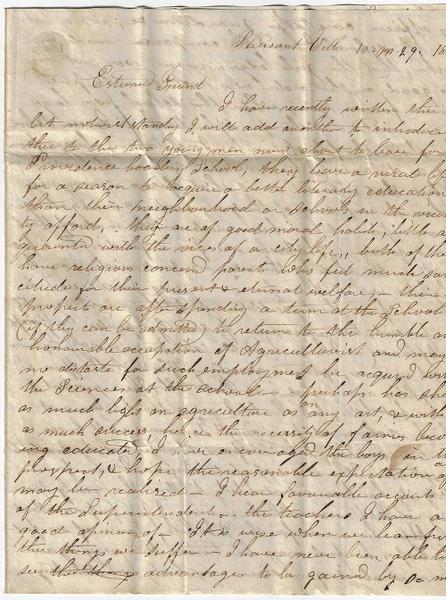 Pleasant Ville 10. m 29. 18
Esteemd Friend
I have recently written thee
but notwithstandg I will add another to introduce
thee to the two young men now about to leave for
Providence boarding School, they leave a rural life
for a season to acquire a better literary education
than their neighbourhood or schools in the
by afford, they are of good moral habits, little ac
quainted with the vices of a city life, both of them
have religious concernd parents who feel much soli
citude for their present & eternal welfare, - their
prospects are after spending a term at the School
(if they can be admitted) to return to the humble and
honourable occupation of Agriculturist and may
no distaste for such employment be acquired with
the Sciences at the school perhaps has shed
as much light on agriculture as on any art, & with
as much success, hence the necessity of farmers becom
ing educated I have encouraged the boys in the
prospect, & hope the reasonable expectation
may be realized - I hear favourable accounts
of the Superintendent - the teachers I have a
good opinion of - It is wise when we learn from
the things we suffer - I have never been able to
see the advantages to be gained by